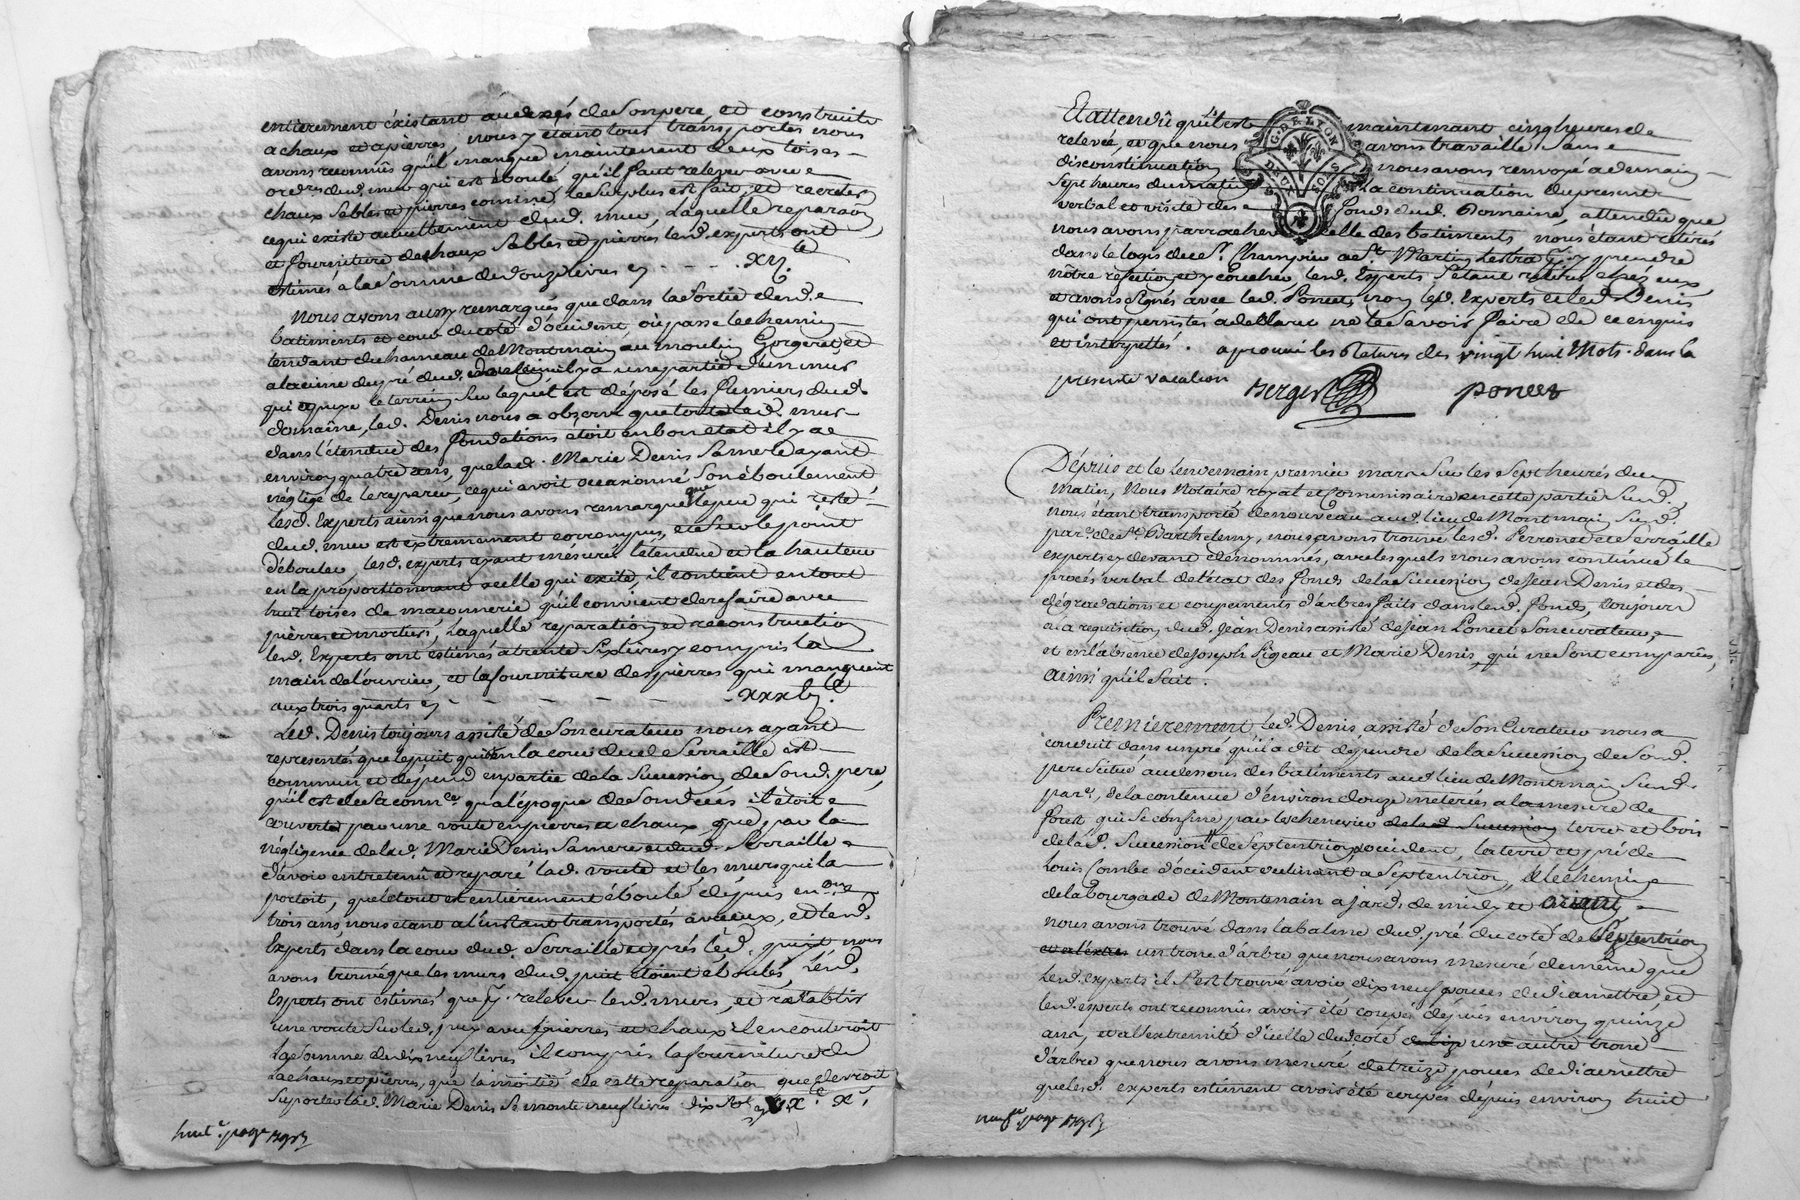 entierement éxistant au decés de Son pere, et construite
a chaux et a pierres, nous y étant tous transportés nous
avons reconnûs qu'il manque maintenant deux toises
dud. mur qui est éboulé qu'il faut relever avec
chaux Sables et pierres comme le Surplus est fait, et recreler
ce qui existe actuellement dud. mur, Laquelle reparaõn
et fourniture de chaux Sables et pierres lesd. experts ont
estimés a la Somme de douze livres cy - - - - xij.ᵗᵗ
Nous avons aussy remarqués que dans la Sortie desd.
batiments et cour du coté d'occident où passe le chemin
tendant du hameau de Montmain au moulin Gorgeret, et
a la cime du pré dud. il y a une partie d'un mur
qui le terrein Sur lequel est déposé les fumiers dud.
domaîne, led. Denis nous a observé que tout led. mur
dans l'étendue des fondations étoit en bon etat il y a
environ quatre ans, que lad. Marie Denis Sa mere ayant
négligé de le reparer, ce qui avoit occasionné Son éboulement
Lesd. Experts ainsi que nous avons remarqué que le peu qui reste
dud. mur est extremement corrompu, et Sur le point
d'ébouler, lesd. experts ayant mésuré l'étendue et la hauteur
en la proportionnant a celle qui exite, il contient en tout
huit toises de maçonnerie qu'il convient de refaire avec
pierres et mortier, Laquelle reparation et reconstruction
lesd. Experts ont estimés a trente Six livres y compris la
main de l'ouvrier, et la fourniture des pierres qui manquent
aux trois quarts cy - - - - - xxxvj.ᵗᵗ
Led. Denis toujours assisté de Son curateur nous ayant
representés que le puit qui est en la cour dud. de Serraille est
commun et dépend en partie de la Succession de Sond. pere,
qu'il est de Sa conn.ᶜᵉ qu'a l'époque de Son decés il étoit
couverte par une voute en pierres et chaux, que par la
négligence de lad. Marie Denis Sa mere et dud. Serraille
d'avoir entretenû et reparé lad. voute et les murs qui la
portoit, que le tout est entierement éboulé depuis environ
trois ans, nous etant a l'instant transportés avec eux, et lesd.
Experts dans la cour dud. Serraille et prés led. puit nous
avons trouvé que les murs dud. puit étoient éboulés, Lesd.
Experts ont estimés que p.ʳ relever lesd. murs, et rétablir
une voute Sur led. puit avec pierres et chaux il en couteroit
La Somme de dix neuf livres il compris la fourniture de
La chaux et pierres, que la moitié de cette reparation que devroit
Suporter lad. Marie Denis Se monte neuf livres dix Sols cy ix.ᵗᵗ x.ˢ
huit.ᵉ page
Et attendû qu'il est maintenant cinq heures de
relevé, et que nous avons travaillé Sans
discontinuation nous avons renvoyé a demain
Sept heures du matin La continuation du present
verbal et visite des fonds dud. Domaine, attendû que
nous avons parachevé celle des batiments nous étant retirés
dans le logis du S.ʳ Champrin a S.ᵗ Martin Lestra p.ʳ y prendre
notre refection et y coucher, lesd. Experts S'étant retirés chés eux
et avons Signés avec led. Poncet, non lesd. Experts et led. Denis
qui ont persistés a declarer ne le Savoir faire de ce enquis
et interpellés. aprouvé les ratures des vingt huit Mots dans la
presente vacation Berger poncet
Dépuis et le lendemain premier mars Sur les Sept heurés du
matin, Nous Notaire royal et Commissaire en cette partie Susd.
nous étant transporté de nouveau aud. lieu de Montmain Susd.
par.ᵉ de S.ᵗ Barthelemy, nous avons trouvé lesd. Peronet et Serraille
experts cy devant denommés, avec lesquels nous avons continué le
procés verbal de l'état des fonds de la Succession de Jean Denis et des
dégradations et coupements d'arbres faits dans lesd. fonds, toujours
a la requisition dud. Jean Denis assisté de Jean Poncet Son curateur
et en l'absence de Joseph Pigeau et Marie Denis, qui ne Sont comparûs,
ainsi qu'il Suit.
Premierement led. Denis assisté de Son Curateur nous a
conduit dans un pré qu'il a dit dépendre de la Succession de Sond.
pere Situé au dessous des batiments aud. lieu de Montmain Susd.
par.ᵉ, de la contenue d'environ douze méterées a la mesure de
forest qui Se confine par la cheneviere de la d. Succession terre et bois
de la d. Succession de Septentrion, occident, la terre et pré de
Louis Combe d'occident declinant a Septentrion, & le chemin
de la Bourgade de Montmain a Jas de midy et orient,
nous avons trouvé dans la balme dud. pré du coté de Septentrion
un tronc d'arbre que nous avons mesuré de même que
Lesd. experts il S'est trouvé avoir dix neuf pouces de diamettre, et
lesd. experts ont reconnûs avoir été coupé depuis environ quinze
ans, et a l'extremité d'icelle du coté de bize une autre tronc
d'arbre que nous avons mesuré de treize pouces de diamettre
que lesd. experts estiment avoir été coupés depuis environ huit
neuf.ᵉ page
G. DE LYON
DEUX SOLS